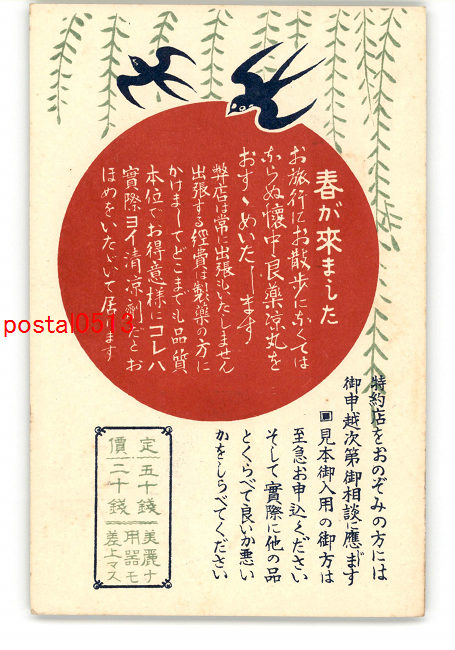 春が來ました
お旅行にお散歩になくては
ならぬ懷中良藥凉丸を
おすゝめいたします
弊店は常に出張もいたしません
出張する經費は製藥の方に
かけましてどこまでも品質
本位でお得意様にコレハ
實際ヨイ清凉劑だとお
ほめをいたゞいて居ります
特約店をおのぞみの方には
御申越次第御相談に應じます
見本御入用の御方は
至急お申込ください
そして實際に他の品
とくらべて良いか悪い
かをしらべてください
定價
五十錢
二十錢
美麗ナ
用器モ
差上マス
postal0513